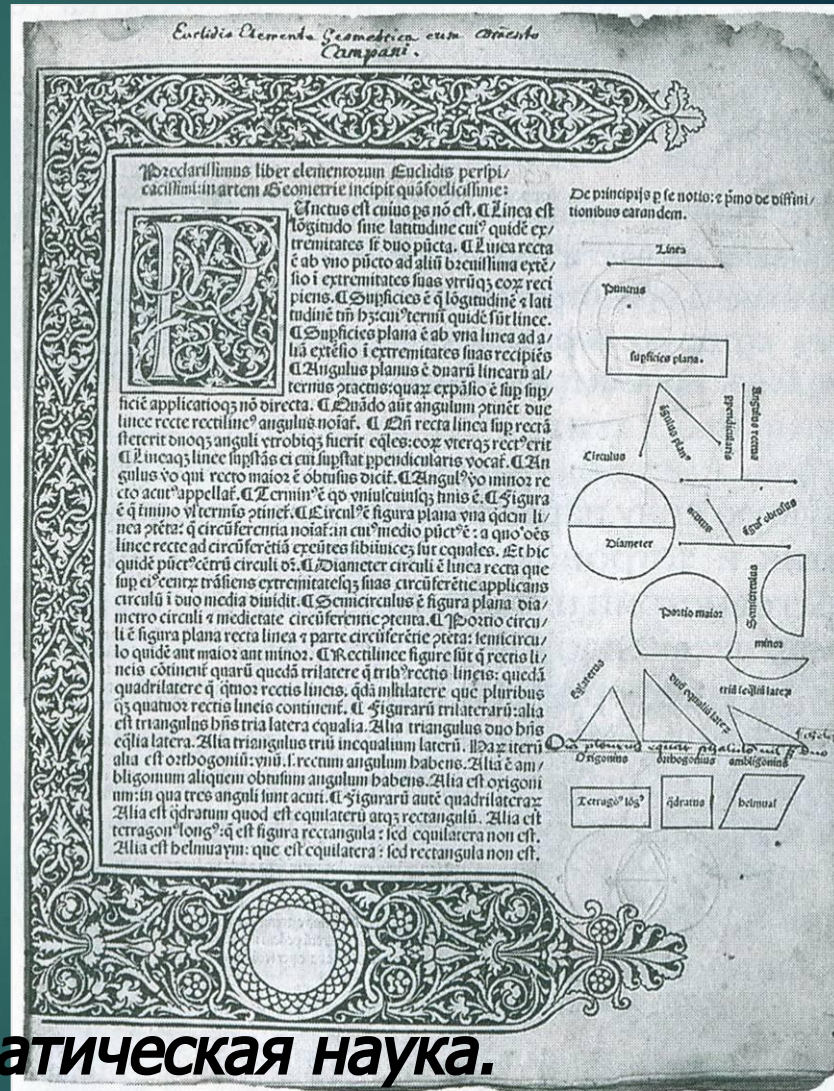 Euclidis Elementa Geometrica cum
Campani.
Preclarissimus liber elementorum Euclidis perspi/
cacissimi: in artem Geometrie incipit quāfoelicissime:
Unctus est cuius ps nō est. ¶ Linea est
lōgitudo sine latitudine cuiꝰ quidē ex/
tremitates sūt duo pūcta. ¶ Linea recta
ē ab vno pūcto ad aliū breuissima extē/
sio ī extremitates suas vtrūqꝫ eoꝝ reci
piens. ¶ Supficies ē q̄ lōgitudinē ⁊ lati
tudinē tm̄ hꝫ: cuiꝰ termī quidē sūt linee.
¶ Supficies plana ē ab vna linea ad a/
liā extēsio ī extremitates suas recipiēs
¶ Angulus planus ē duarū linearū al/
ternus ꝯtactus: quaꝝ expāsio ē sup sup/
ficiē applicatioqꝫ nō directa. ¶ Quādo aūt angulum ꝯtinēt due
linee recte rectilineꝰ angulus noīat̄. ¶ Qn̄ recta linea sup rectā
steterit duoqꝫ anguli vtrobiqꝫ fuerit eq̄les: eoꝝ vterqꝫ rectꝰ erit
¶ Lineaqꝫ linee supstās ei cui supstat ppendicularis vocat̄. ¶ An
gulus vo qui recto maior ē obtusus dicit̄. ¶ Angulꝰ vo minor re
cto acutꝰ appellat̄. ¶ Terminꝰ ē qd vniuscuiusqꝫ finis ē. ¶ Figura
ē q̄ timino vl terminis ꝯtinet̄. ¶ Circulꝰ ē figura plana vna qdem li/
nea ꝯtēta: q̄ circūferentia noīat̄: in cuiꝰ medio pūctꝰ ē: a quo oēs
linee recte ad circūferētiā exeūtes sibiinuicē sūt equales. Et hic
quidē pūctꝰ cētrū circuli dr̄. ¶ Diameter circuli ē linea recta que
sup eiꝰ centꝝ trāsiens extremitatesqꝫ suas circūferētie applicans
circulū ī duo media diuidit. ¶ Semicirculus ē figura plana dia/
metro circuli ⁊ medietate circūferentie ꝯtenta. ¶ Portio circu/
li ē figura plana recta linea ⁊ parte circūferētie ꝯtēta: semicircu/
lo quidē aut maior aut minor. ¶ Rectilinee figure sūt q̄ rectis li/
neis cōtinent̄ quarū quedā trilatere q̄ tribꝰ rectis lineis: quedā
quadrilatere q̄ q̄tuor rectis lineis. q̄dā mltilatere que pluribus
qꝫ quatuor rectis lineis continent̄. ¶ Figurarū trilaterarū: alia
est triangulus hn̄s tria latera equalia. Alia triangulus duo hn̄s
eq̄lia latera. Alia triangulus triū inequalium laterū. Haꝝ iterū
alia est orthogoniū: vnū .s. rectum angulum habens. Alia ē am/
bligonium aliquem obtusum angulum habens. Alia est oxigoni
um: in qua tres anguli sunt acuti. ¶ Figurarū autē quadrilateraꝝ
Alia est q̄dratum quod est equilaterū atqꝫ rectangulū. Alia est
tetragonꝰ longꝰ: q̄ est figura rectangula: sed equilatera non est.
Alia est helmuaym: que est equilatera: sed rectangula non est.
De principijs p se notis: ⁊ pmo de diffini/
tionibus earandem.
Linea
Punctus
supficies plana.
āgulus planꝰ
Angulus rectus
ppendicularis
Circulus
Diameter
acutus
āgulꝰ obtusus
Portio maior
Semicirculus
minor
Eqlaterus
duo equaliū lateꝝ
Oxigonius
orthogonius
ambligonius
Tetragōꝰ lōgꝰ
q̄dratus
helmual
атическая наука.